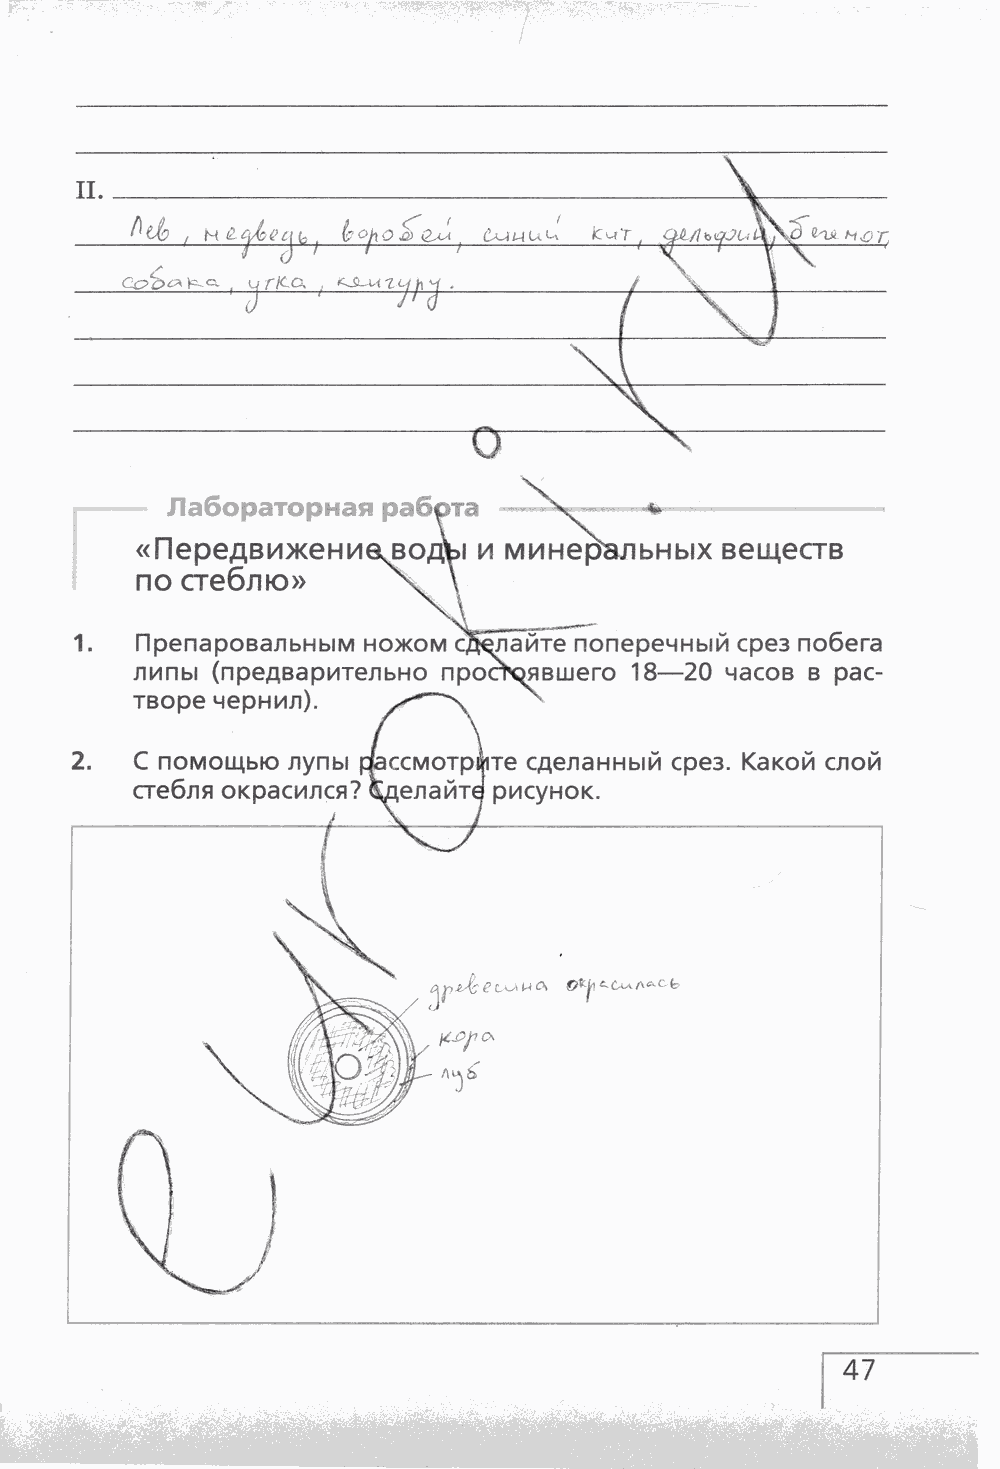 II.
Лев, медведь, воробей, синий кит, дельфин, бегемот,
собака, утка, кенгуру.
Лабораторная работа
«Передвижение воды и минеральных веществ
по стеблю»
1. Препаровальным ножом сделайте поперечный срез побега
липы (предварительно простоявшего 18—20 часов в рас-
творе чернил).
2. С помощью лупы рассмотрите сделанный срез. Какой слой
стебля окрасился? Сделайте рисунок.
древесина окрасилась
кора
луб
47